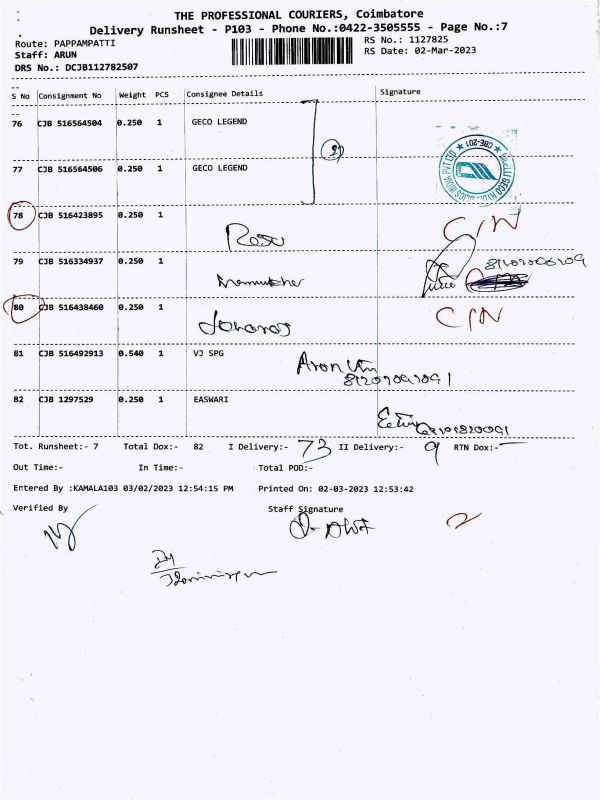 THE PROFESSIONAL COURIERS, Coimbatore
Delivery Runsheet - P103 - Phone No.:0422-3505555 - Page No.:7
Route: PAPPAMPATTI RS No.: 1127825
Staff: ARUN RS Date: 02-Mar-2023
DRS No.: DCJB112782507
S No Consignment No Weight PCS Consignee Details Signature
76 CJB 516564504 0.250 1 GECO LEGEND
77 CJB 516564506 0.250 1 GECO LEGEND
CBE-201
78 CJB 516423895 0.250 1
C/N
79 CJB 516334937 0.250 1
80 CJB 516438460 0.250 1
C/N
81 CJB 516492913 0.540 1 VJ SPG
82 CJB 1297529 0.250 1 EASWARI
Tot. Runsheet:- 7 Total Dox:- 82 I Delivery:- 73 II Delivery:- 9 RTN Dox:- -
Out Time:- In Time:- Total POD:-
Entered By :KAMALA103 03/02/2023 12:54:15 PM Printed On: 02-03-2023 12:53:42
Verified By Staff Signature
2